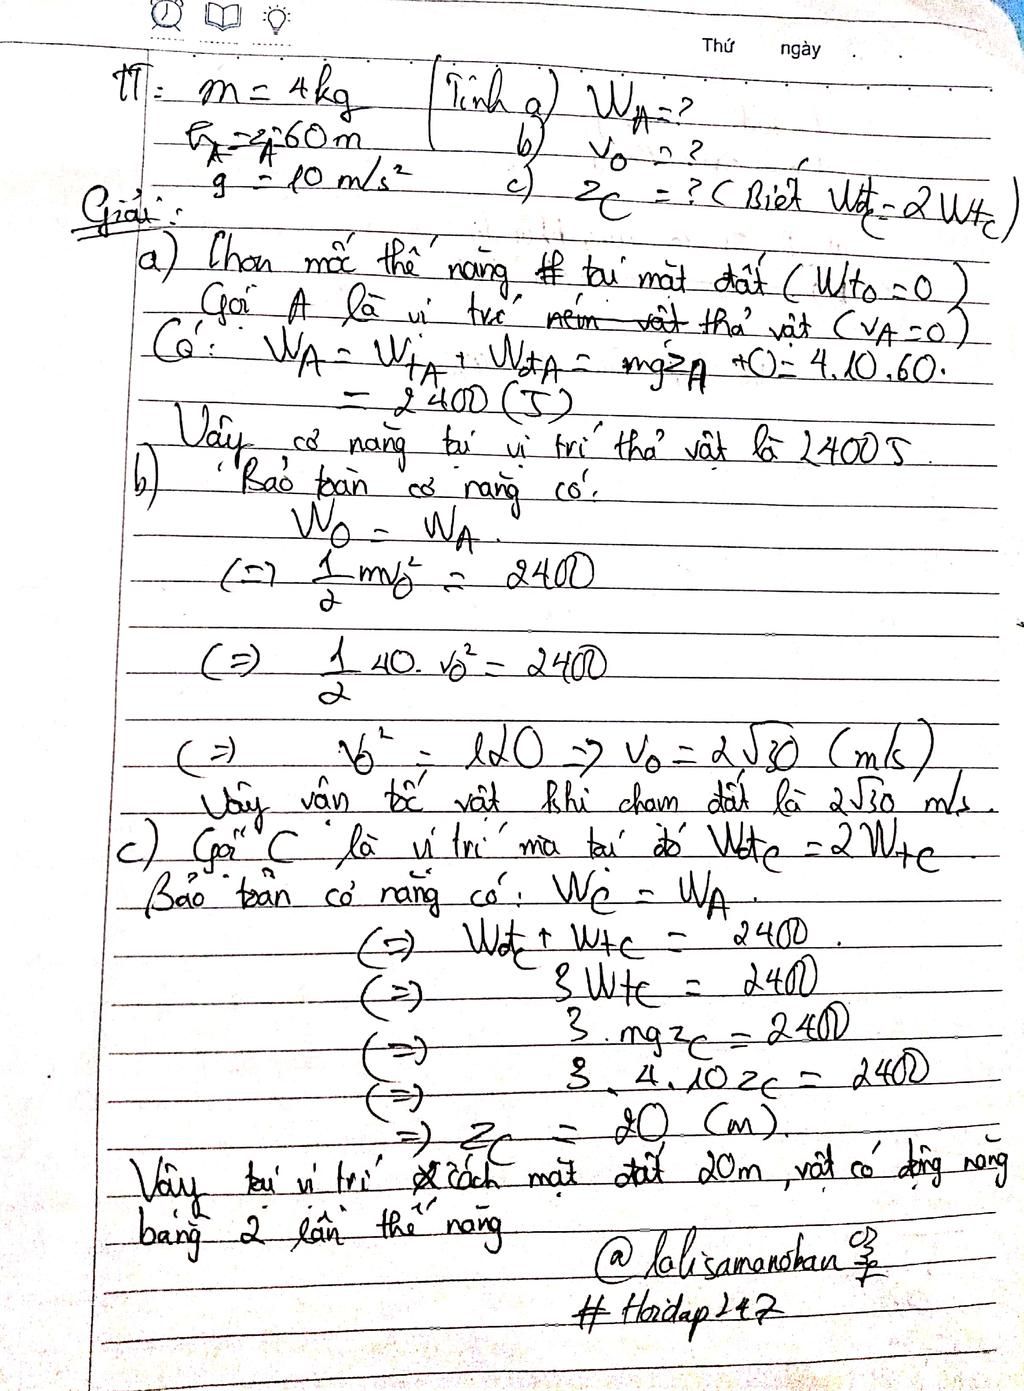 Thứ ngày
TT: m = 4kg Tính a) W_A = ?
h_A = z_A = 60m b) v_0 = ?
g = 10 m/s² c) z_C = ? (Biết Wđ_C = 2Wt_C)
Giải:
a) Chọn mốc thế năng tại mặt đất (Wt_0 = 0)
Gọi A là vị trí ném vật thả vật (v_A = 0)
Có: W_A = Wt_A + Wđ_A = mgz_A + 0 = 4.10.60.
= 2400 (J)
Vậy cơ năng tại vị trí thả vật là 2400J.
b) Bảo toàn cơ năng có:
W_0 = W_A.
(=) 1/2 mv_0² = 2400
(=) 1/2 40. v_0² = 2400
(=) v_0² = 120 => v_0 = 2√30 (m/s)
Vậy vận tốc vật khi chạm đất là 2√30 m/s.
c) Gọi C là vị trí mà tại đó Wđ_C = 2Wt_C
Bảo toàn cơ năng có: W_C = W_A.
(=) Wđ_C + Wt_C = 2400.
(=) 3Wt_C = 2400
(=) 3.mgz_C = 2400
(=) 3.4.10z_C = 2400
=) z_C = 20 (m).
Vậy tại vị trí cách mặt đất 20m, vật có động năng
bằng 2 lần thế năng
@lalisamanoban
#Hoidap247